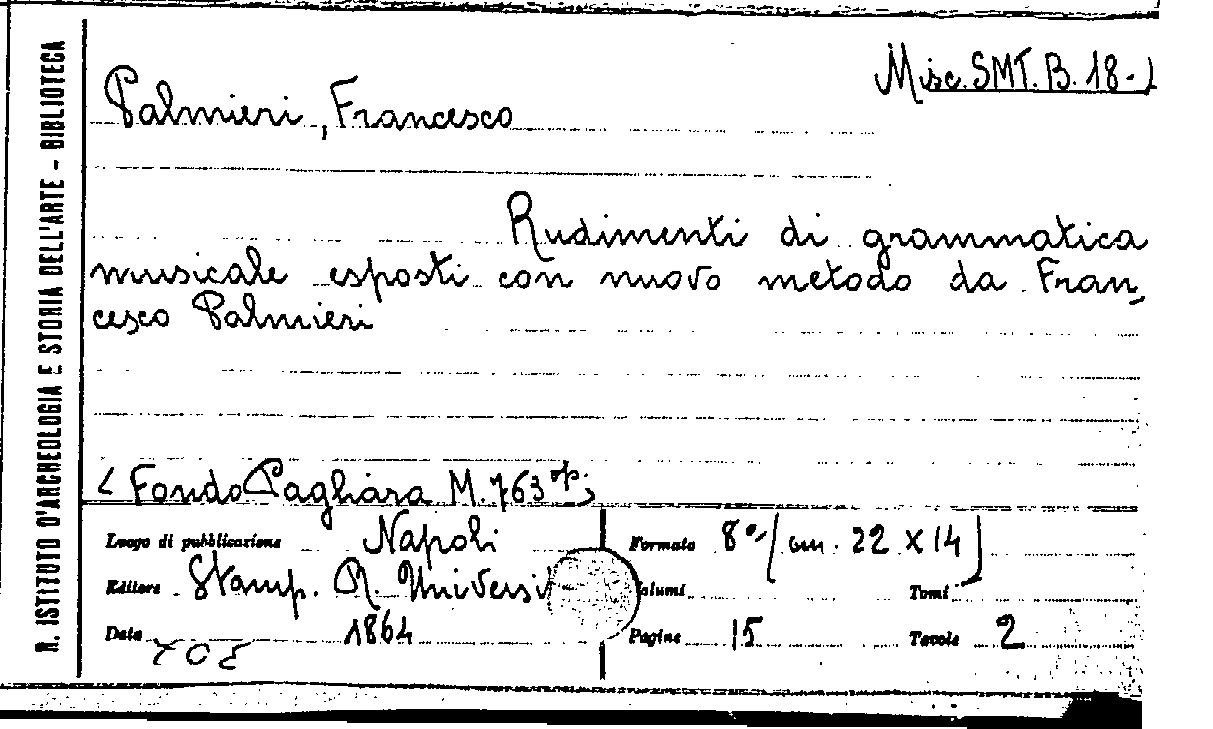 R. ISTITUTO D'ARCHEOLOGIA E STORIA DELL'ARTE - BIBLIOTECA
Misc. SMT. B. 18-
Palmieri, Francesco
Rudimenti di grammatica
musicale esposti con nuovo metodo da Fran,
cesco Palmieri
Fondo Pagliara M. 763
Luogo di pubblicazione Napoli
Formato 8° (cm. 22 x 14)
Editore Stamp. R.
Volumi
Tomi
Data 1864
Pagine 15
Tavole 2